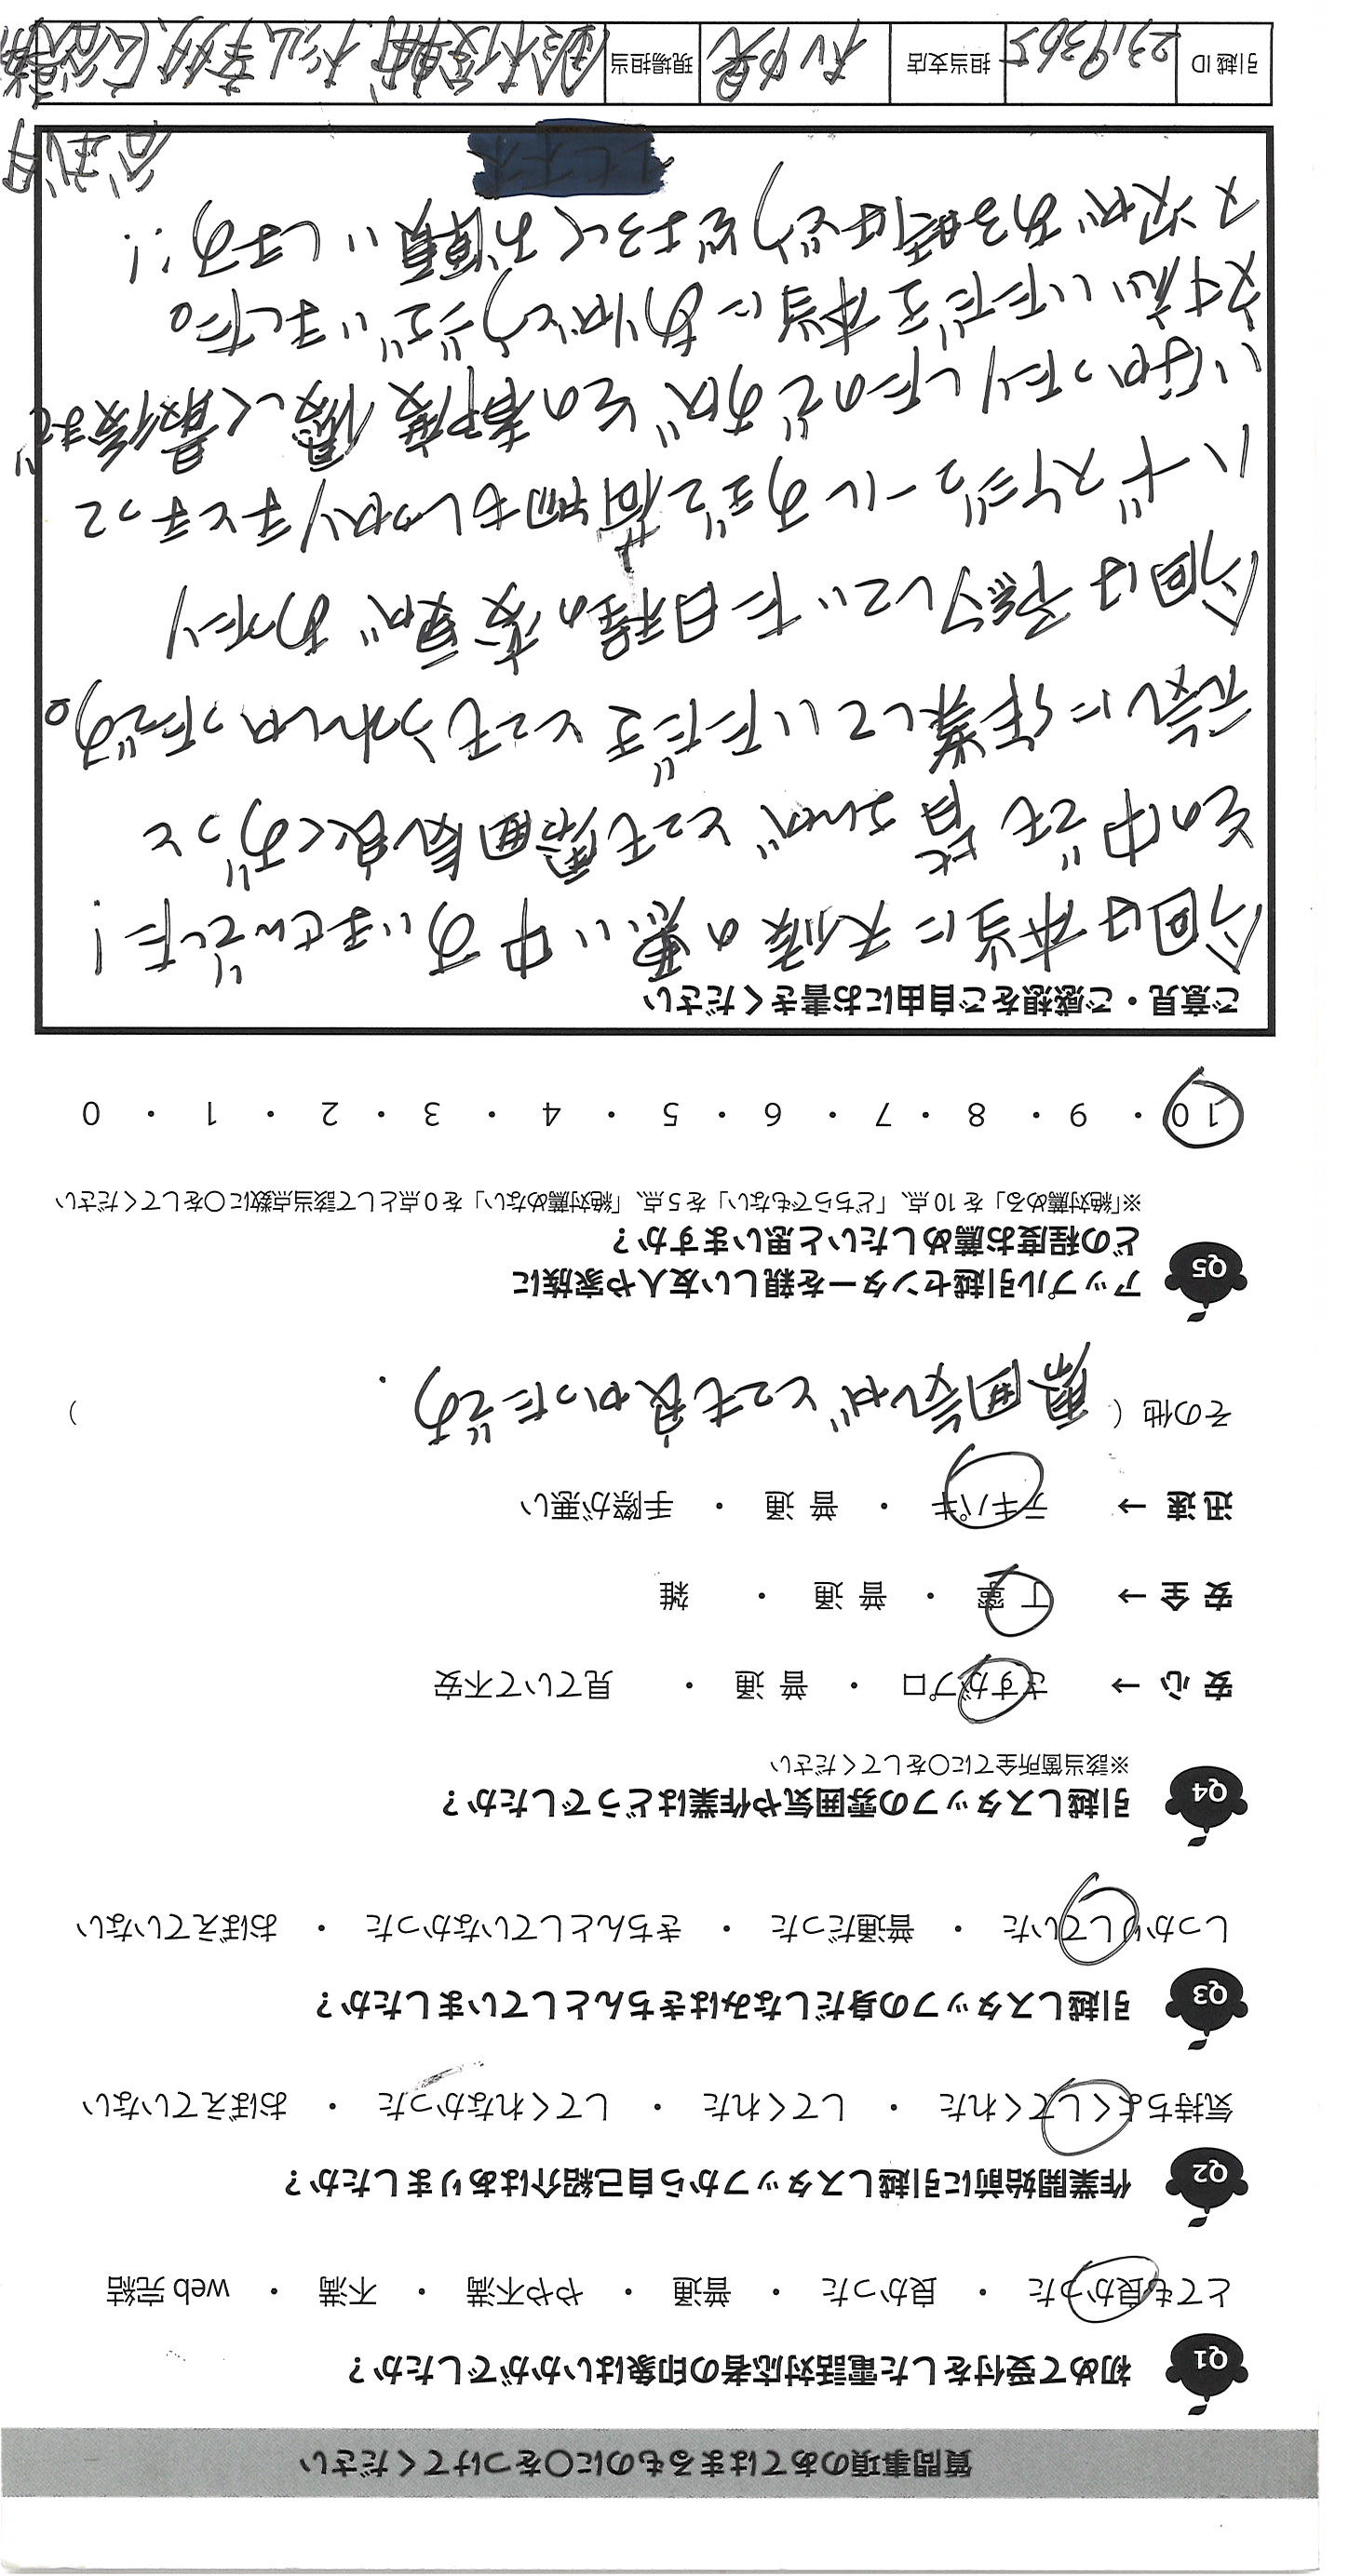 質問事項のあてはまるものに〇をつけてください
Q1 初めて受付をした電話対応者の印象はいかがでしたか？
とても良かった ・ 良かった ・ 普通 ・ やや不満 ・ 不満 ・ web 完結
Q2 作業開始前に引越しスタッフから自己紹介はありましたか？
気持ちよくしてくれた ・ してくれた ・ してくれなかった ・ おぼえていない
Q3 引越しスタッフの身だしなみはきちんとしていましたか？
しっかりしていた ・ 普通だった ・ きちんとしていなかった ・ おぼえていない
Q4 引越しスタッフの雰囲気や作業はどうでしたか？
※該当箇所全てに〇をしてください
安 心 → さすがプロ ・ 普 通 ・ 見ていて不安
安 全 → 丁 寧 ・ 普 通 ・ 雑
迅 速 → テキパキ ・ 普 通 ・ 手際が悪い
その他（ 雰囲気がとても良かったです. ）
Q5 アップル引越センターを親しい友人や家族に
どの程度お薦めしたいと思いますか？
※「絶対薦める」を 10 点、「どちらでもない」を 5 点、「絶対薦めない」を 0 点として該当点数に〇をしてください
10 ・ 9 ・ 8 ・ 7 ・ 6 ・ 5 ・ 4 ・ 3 ・ 2 ・ 1 ・ 0
ご意見・ご感想をご自由にお書きください
今回は本当に天候の悪い中すいませんでした！
その中でも皆さんがとても雰囲気良くずっと
元気に作業していただきとてもうれしかったです。
今回は予約していた日程の変更があったり
ハードスケジュールすぎて荷物もしっかり手とまって
いなかったりしたのですがその都度優しく最後まで
対応いただき本当にありがとうございました。
又次がある時はどうぞよろしくお願いします!!
引越 ID 2319365 担当支店 現場担当